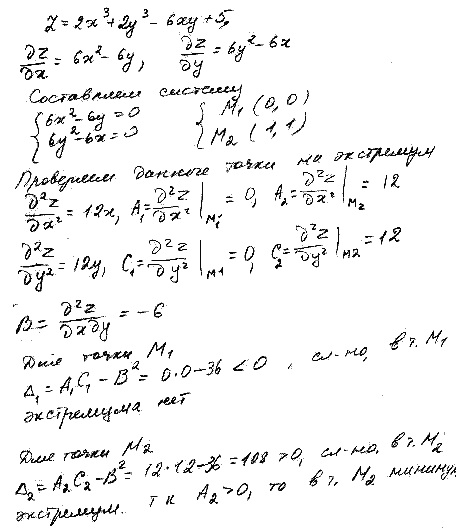 Z = 2x³ + 2y³ - 6xy + 5,
∂z/∂x = 6x² - 6y, ∂z/∂y = 6y² - 6x
Составляем систему
{ 6x² - 6y = 0 { M₁ (0, 0)
{ 6y² - 6x = 0 { M₂ (1, 1)
Проверяем данные точки на экстремум
∂²z/∂x² = 12x, A₁ = ∂²z/∂x² |M₁ = 0, A₂ = ∂²z/∂x² |M₂ = 12
∂²z/∂y² = 12y, C₁ = ∂²z/∂y² |M1 = 0, C₂ = ∂²z/∂y² |M2 = 12
B = ∂²z/∂x∂y = -6
Для точки M₁
Δ₁ = A₁C₁ - B² = 0·0 - 36 < 0, сл-но, в т. M₁
экстремума нет
Для точки M₂
Δ₂ = A₂C₂ - B² = 12·12 - 36 = 108 > 0, сл-но, в т. M₂
экстремум. т к A₂ > 0, то в т. M₂ минимум